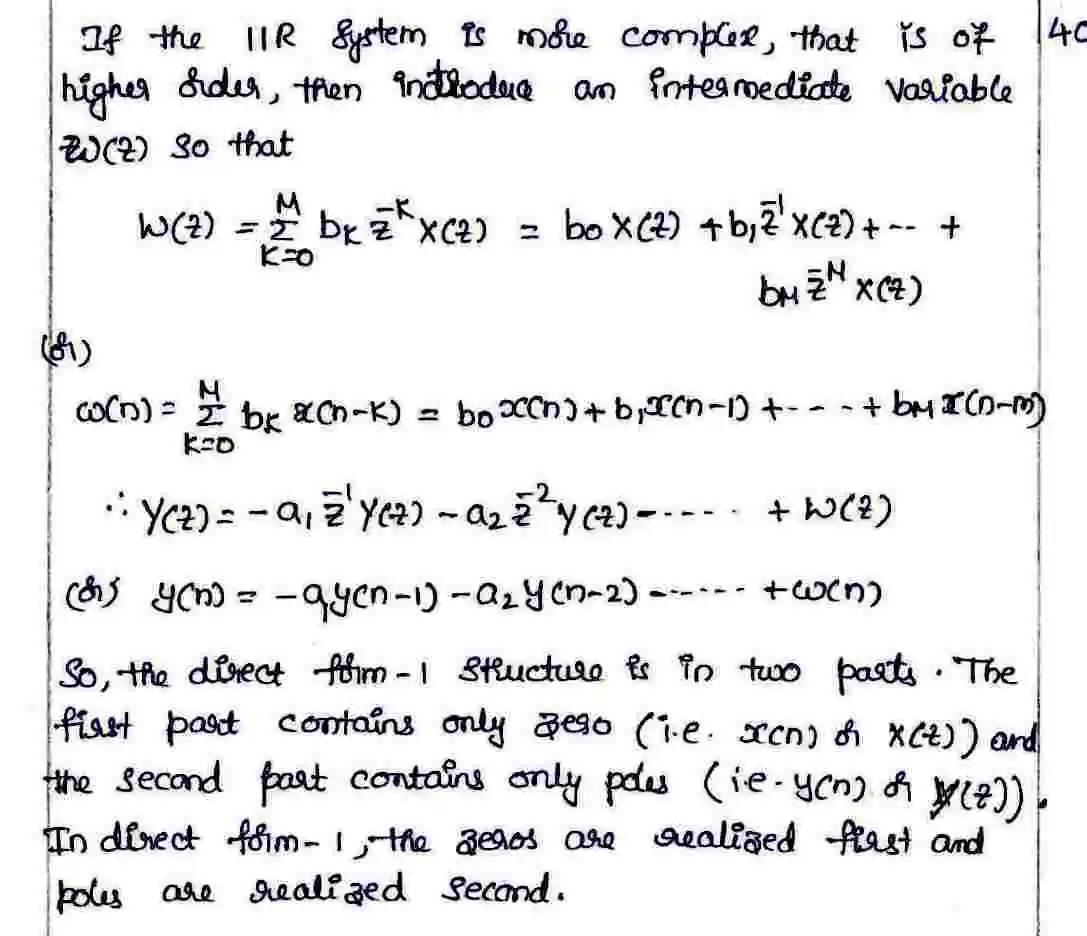 If the IIR System is more complex, that is of 40
higher order, then introduce an intermediate variable
W(z) so that
W(z) = Σ_{K=0}^{M} b_K z^{-K} X(z) = b0 X(z) + b1 z^{-1} X(z) + -- +
b_M z^{-M} X(z)
(or)
ω(n) = Σ_{K=0}^{M} b_K x(n-K) = b0 x(n) + b1 x(n-1) + - - - + b_M x(n-m)
∴ Y(z) = -a1 z^{-1} Y(z) - a2 z^{-2} Y(z) - - - - - + W(z)
(or) y(n) = -a1 y(n-1) - a2 y(n-2) - - - - - - + ω(n)
So, the direct form-1 structure is in two parts. The
first part contains only zero (i.e. x(n) or X(z)) and
the second part contains only poles (i.e. y(n) or Y(z)).
In direct form-1, the zeros are realized first and
poles are realized second.